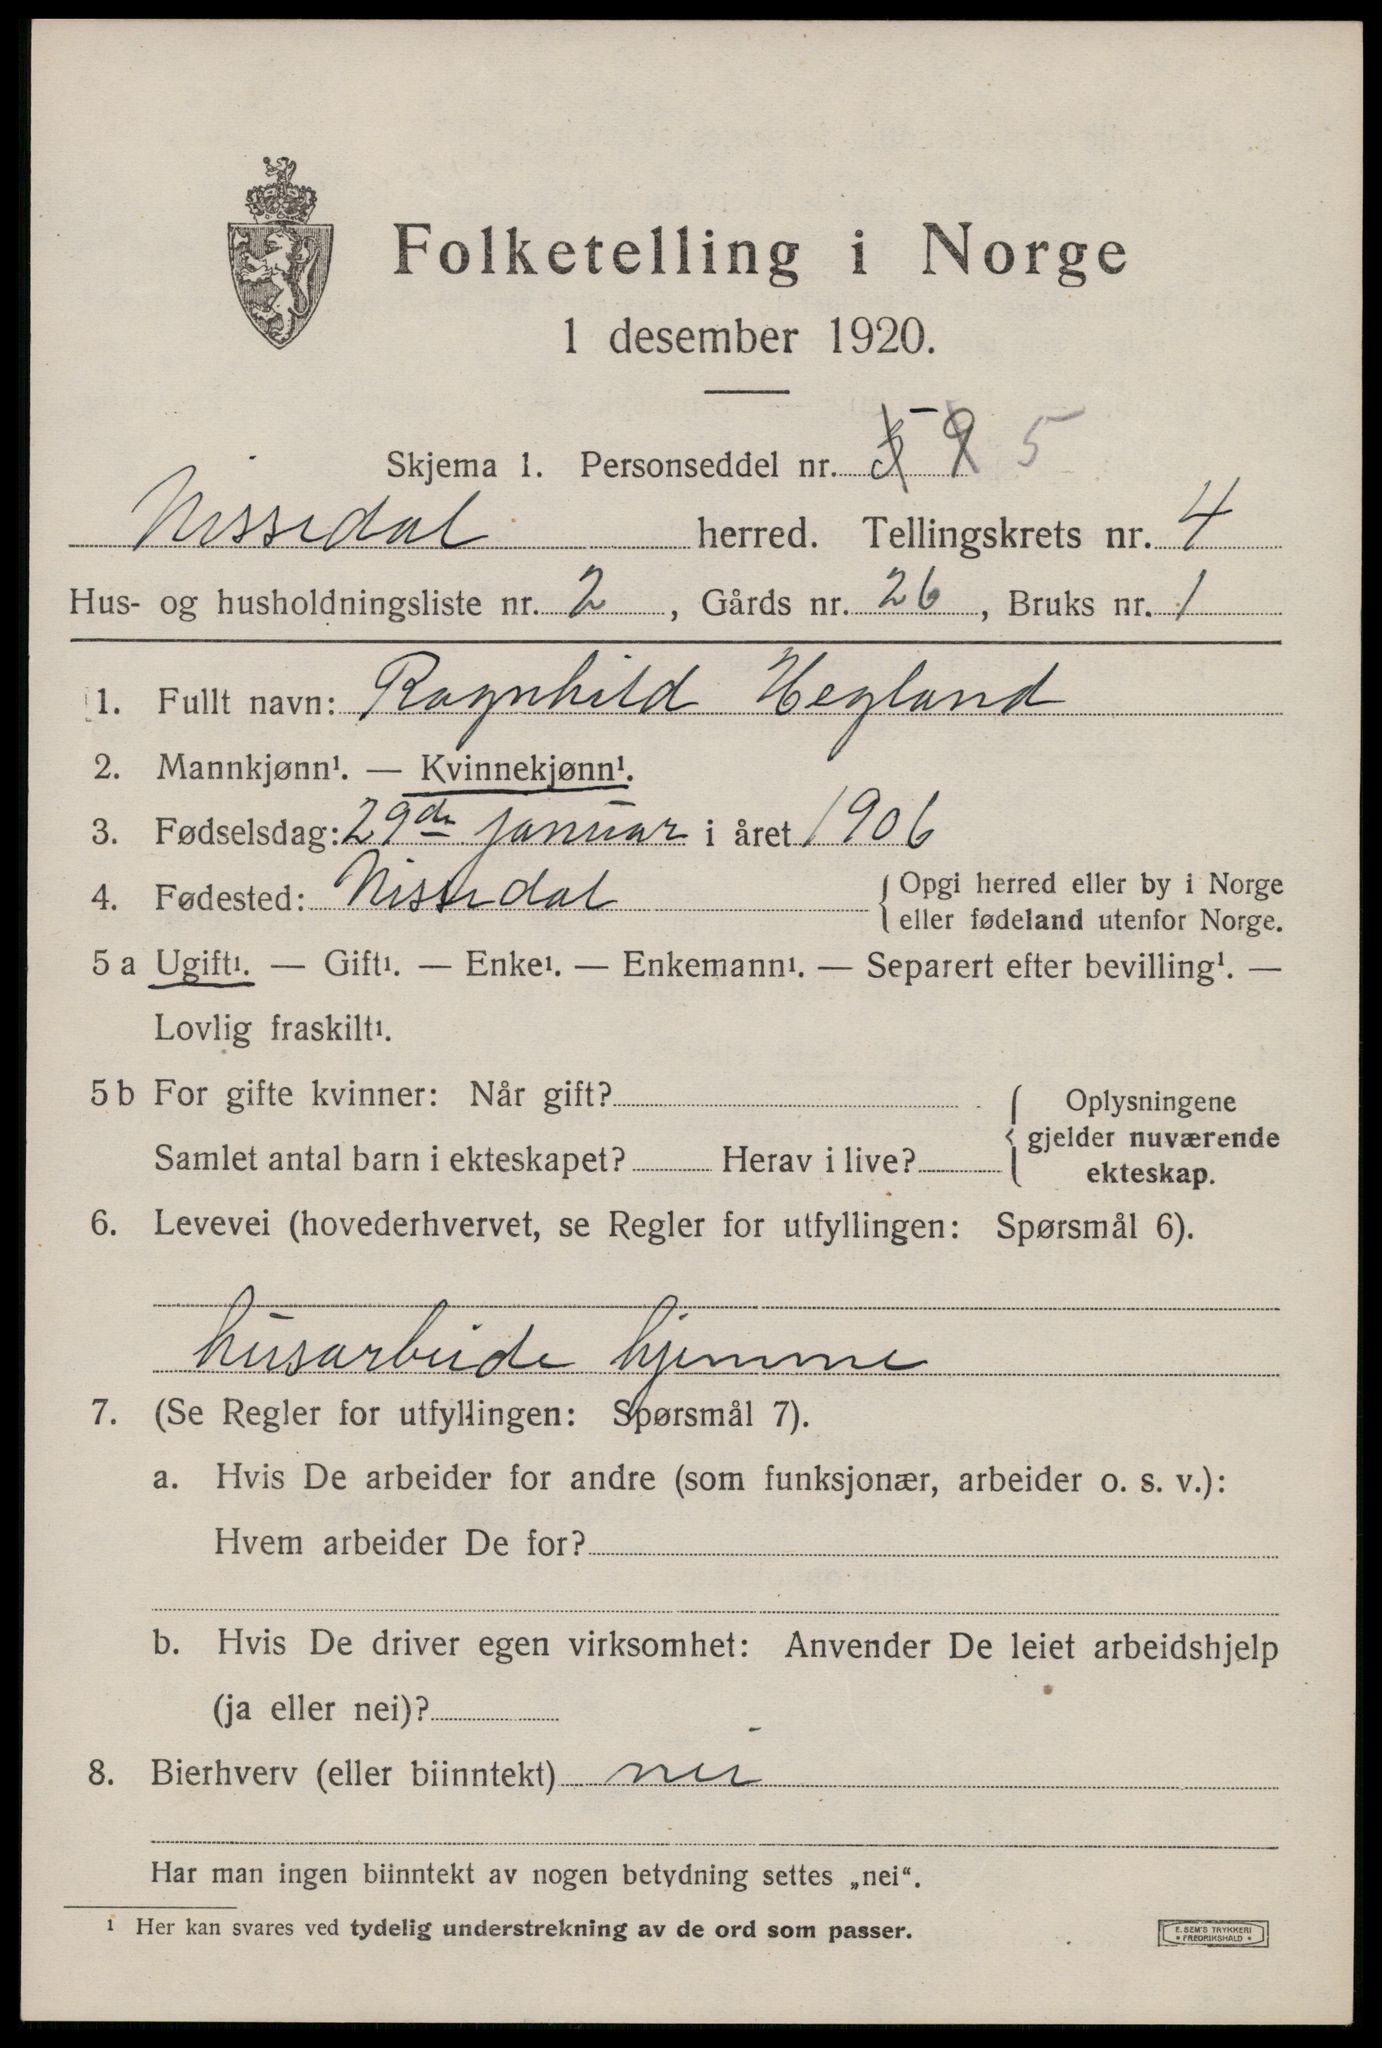 Folketelling i Norge
1 desember 1920.
Skjema 1. Personseddel nr. 5 9 5
Nissedal herred. Tellingskrets nr. 4
Hus- og husholdningsliste nr. 2, Gårds nr. 26, Bruks nr. 1
1. Fullt navn: Ragnhild Hegland
2. Mannkjønn¹. — Kvinnekjønn¹.
3. Fødselsdag: 29de januar i året 1906
4. Fødested: Nissedal { Opgi herred eller by i Norge
eller fødeland utenfor Norge.
5 a Ugift¹. — Gift¹. — Enke¹. — Enkemann¹. — Separert efter bevilling¹. —
Lovlig fraskilt¹.
5 b For gifte kvinner: Når gift?
Samlet antal barn i ekteskapet? Herav i live?
{ Oplysningene
gjelder nuværende
ekteskap.
6. Levevei (hovederhvervet, se Regler for utfyllingen: Spørsmål 6).
husarbeide hjemme
7. (Se Regler for utfyllingen: Spørsmål 7).
a. Hvis De arbeider for andre (som funksjonær, arbeider o. s. v.):
Hvem arbeider De for?
b. Hvis De driver egen virksomhet: Anvender De leiet arbeidshjelp
(ja eller nei)?
8. Bierhverv (eller biinntekt) nei
Har man ingen biinntekt av nogen betydning settes „nei“.
¹ Her kan svares ved tydelig understrekning av de ord som passer.
E. SEM'S TRYKKERI
* FREDRIKSHALD *